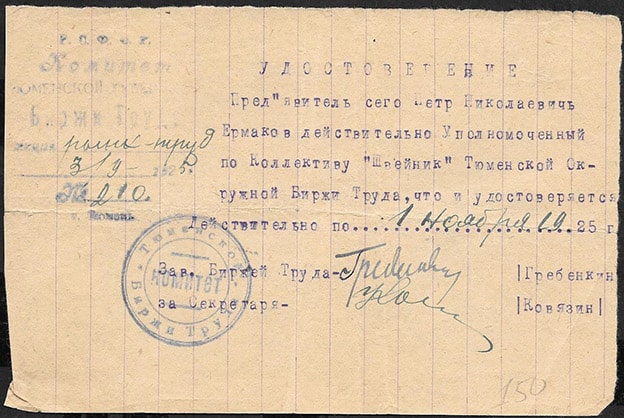 Р. С. Ф. С. Р.
Комитет
ТЮМЕНСКОЙ
Биржи Труд.
3/IX 1925
№ 210.
г. Тюмень
УДОСТОВЕРЕНИЕ
Пред"явитель сего Петр Николаевичь
Ермаков действительно Уполномоченный
по Коллективу "Швейник" Тюменской Ок-
ружной Биржи Труда, что и удостоверяется
Действительно по 1 ноября 19 25 г
Зав. Биржей Труда- |Гребенкин
за Секретаря- |Ковязин|
Тюменской
КОМИТЕТ
Биржи Труда
150